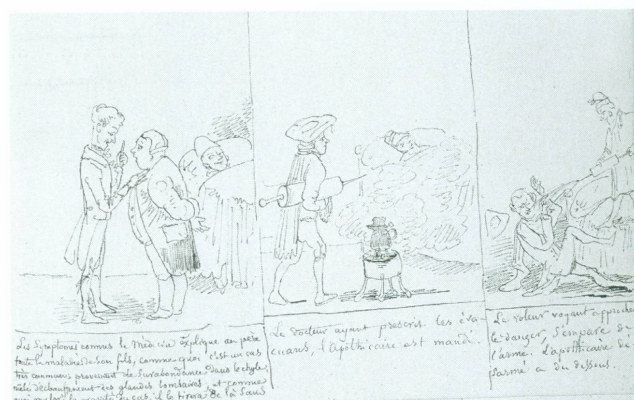 Les Symptomes connus le Médecin explique au père
toute la maladie de son fils, comme quoi c'est un cas
très commun provenant de Surabondance dans le chyle,
mêlé d'échauffement des glandes lombaires, et comme
quoi malgré la gravité du cas, il le tirera de là sauf
Le docteur ayant prescrit les éva
cuans, l'Apothicaire est mandé.
Le voleur voyant approcher
le danger, s'empare de
l'arme. L'apothicaire dé-
sarmé a du dessous.